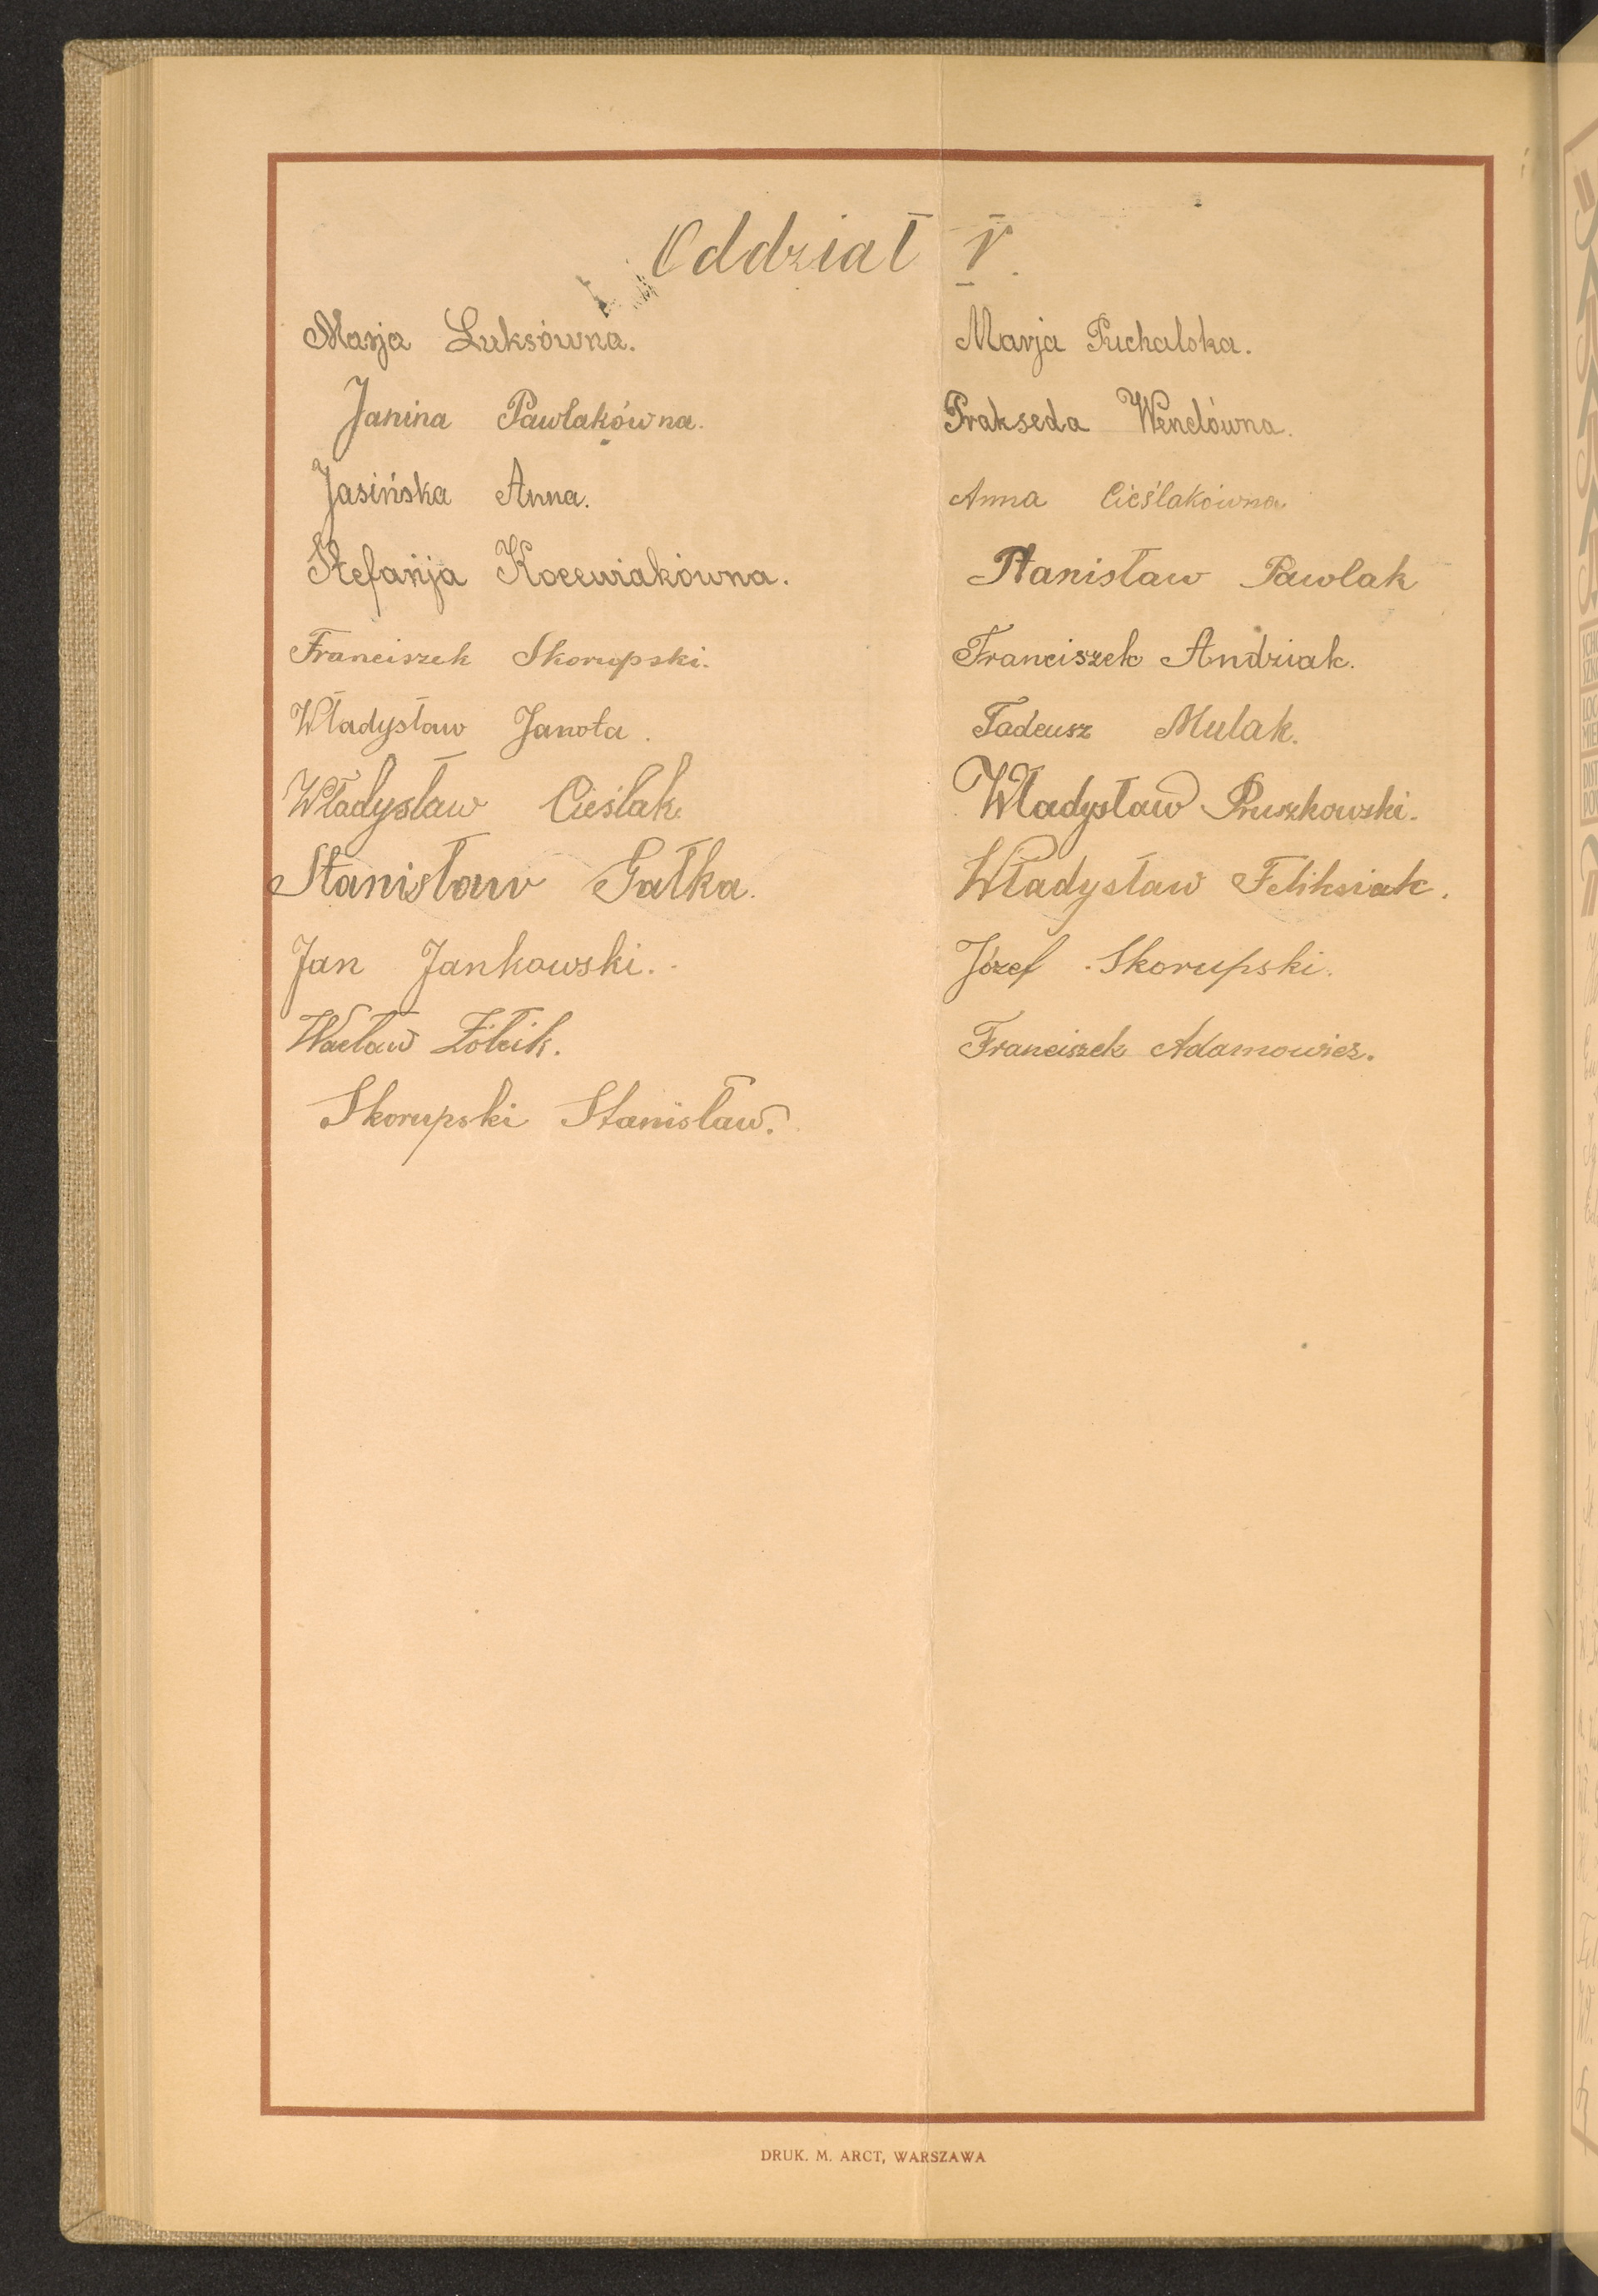 Oddział V.
Marja Luksówna.
Janina Pawlakówna.
Jasińska Anna.
Stefanja
Franciszek Skorupski.
Władysław Janota.
Władysław Cieślak.
Stanisław Gałka.
Jan Jankowski.
Wacław Żółcik.
Skorupski Stanisław.
Marja Puchalska.
Prakseda Wenclówna.
Anna Cieślakówna
Stanisław Pawlak
Franciszek Andziak.
Tadeusz Mulak.
Władysław Pruszkowski.
Władysław Feliksiak.
Józef Skorupski.
Franciszek Adamowicz.
DRUK. M. ARCT, WARSZAWA